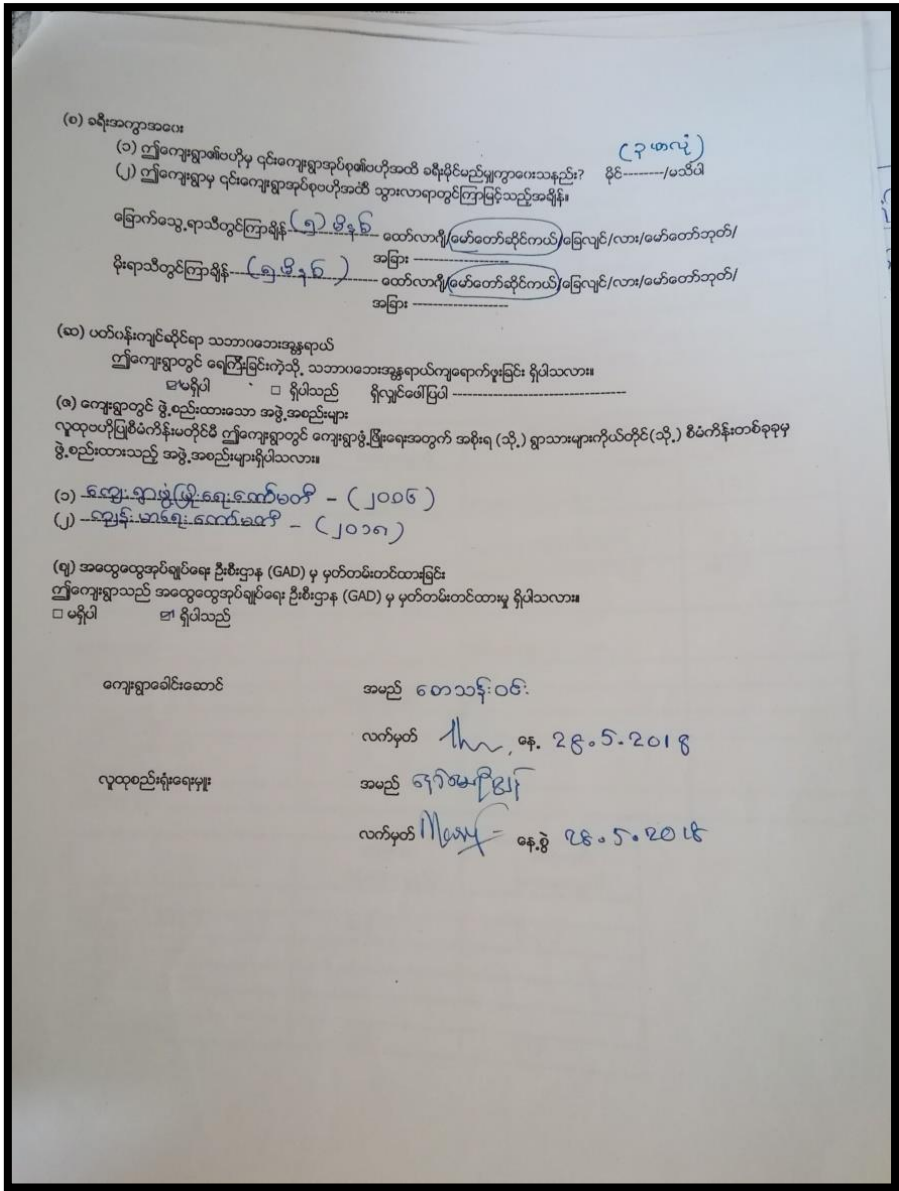 (စ) ခရီးအကွာအဝေး
(၁) ဤကျေးရွာ၏ဗဟိုမှ ၎င်းကျေးရွာအုပ်စု၏ဗဟိုအထိ ခရီးမိုင်မည်မျှကွာဝေးသနည်း? မိုင်--------/မသိပါ
(၃ ဖာလုံ)
(၂) ဤကျေးရွာမှ ၎င်းကျေးရွာအုပ်စုဗဟိုအထိ သွားလာရာတွင်ကြာမြင့်သည့်အချိန်။
ခြောက်သွေ့ရာသီတွင်ကြာချိန် (၅) မိနစ် ---- ထော်လာဂျီ/မော်တော်ဆိုင်ကယ်/ခြေလျင်/လား/မော်တော်ဘုတ်/
အခြား --------------------
မိုးရာသီတွင်ကြာချိန်---(၅ မိနစ် )------- ထော်လာဂျီ/မော်တော်ဆိုင်ကယ်/ခြေလျင်/လား/မော်တော်ဘုတ်/
အခြား --------------------
(ဆ) ပတ်ဝန်းကျင်ဆိုင်ရာ သဘာဝဘေးအန္တရာယ်
ဤကျေးရွာတွင် ရေကြီးခြင်းကဲ့သို့ သဘာဝဘေးအန္တရာယ်ကျရောက်ဖူးခြင်း ရှိပါသလား။
☑ မရှိပါ □ ရှိပါသည် ရှိလျှင်ဖော်ပြပါ ------------------------------------
(ဇ) ကျေးရွာတွင် ဖွဲ့စည်းထားသော အဖွဲ့အစည်းများ
လူထုဗဟိုပြုစီမံကိန်းမတိုင်မီ ဤကျေးရွာတွင် ကျေးရွာဖွံ့ဖြိုးရေးအတွက် အစိုးရ (သို့) ရွာသားများကိုယ်တိုင်(သို့) စီမံကိန်းတစ်ခုခုမှ
ဖွဲ့စည်းထားသည့် အဖွဲ့အစည်းများရှိပါသလား။
(၁) ကျေးရွာဖွံ့ဖြိုးရေးကော်မတီ - (၂၀၁၆)
(၂) ကျန်းမာရေးကော်မတီ - (၂၀၁၈)
(ဈ) အထွေထွေအုပ်ချုပ်ရေး ဦးစီးဌာန (GAD) မှ မှတ်တမ်းတင်ထားခြင်း
ဤကျေးရွာသည် အထွေထွေအုပ်ချုပ်ရေး ဦးစီးဌာန (GAD) မှ မှတ်တမ်းတင်ထားမှု ရှိပါသလား။
□ မရှိပါ ☑ ရှိပါသည်
ကျေးရွာခေါင်းဆောင် အမည် စောသန်းဝင်း
လက်မှတ် နေ့ 28.5.2018
လူထုစည်းရုံးရေးမှူး အမည်
လက်မှတ် နေ့စွဲ 28.5.2018